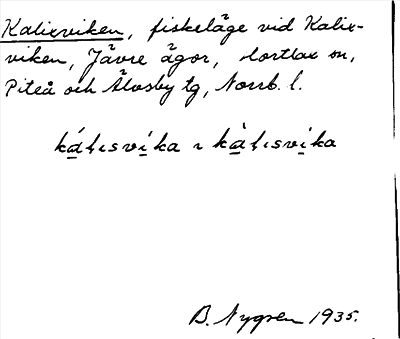 Kalixviken, fiskeläge vid Kalix-
viken, Jävre ägor, Hortlax sn,
Piteå och Älvsby tg, Norrb. l.
kálisvíka ı kàlisvíka
B. Nygren 1935.